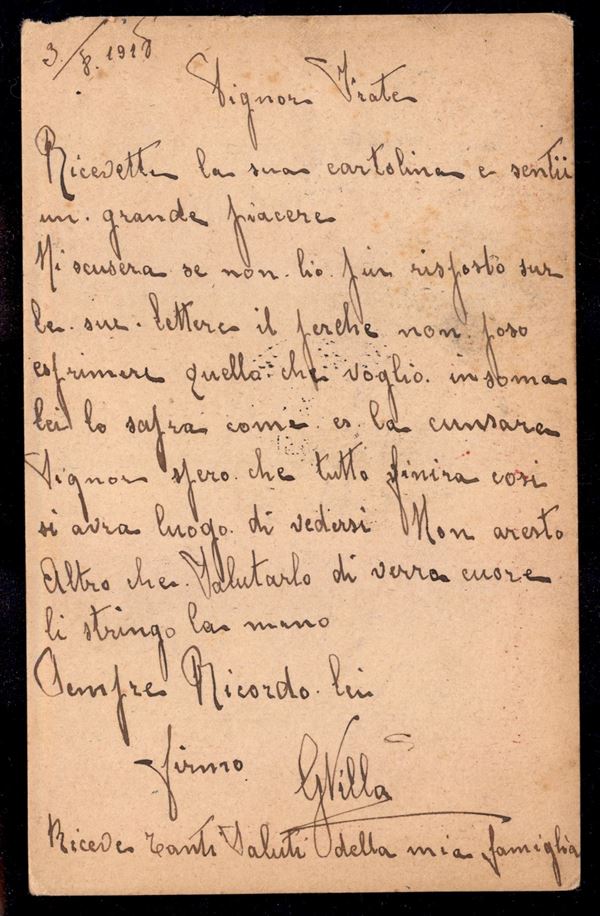 3/8. 1918
Signor Frate
Ricevetti la sua cartolina e sentii
un. grande piacere
Mi scusera se non. lio. piu risposto sur
le. sue. lettere il perche non. poso
esprimere quella. che voglio. insoma
lei lo sapra come. es. la
Signor spero. che tutto finira cosi
si avra luogo. di vedersi Non aresto
Altro che. Salutarlo di verra cuore
li stringo la mano
Sempre Ricordo. lei
firmo GVilla
Riceve tanti Saluti della mia famiglia